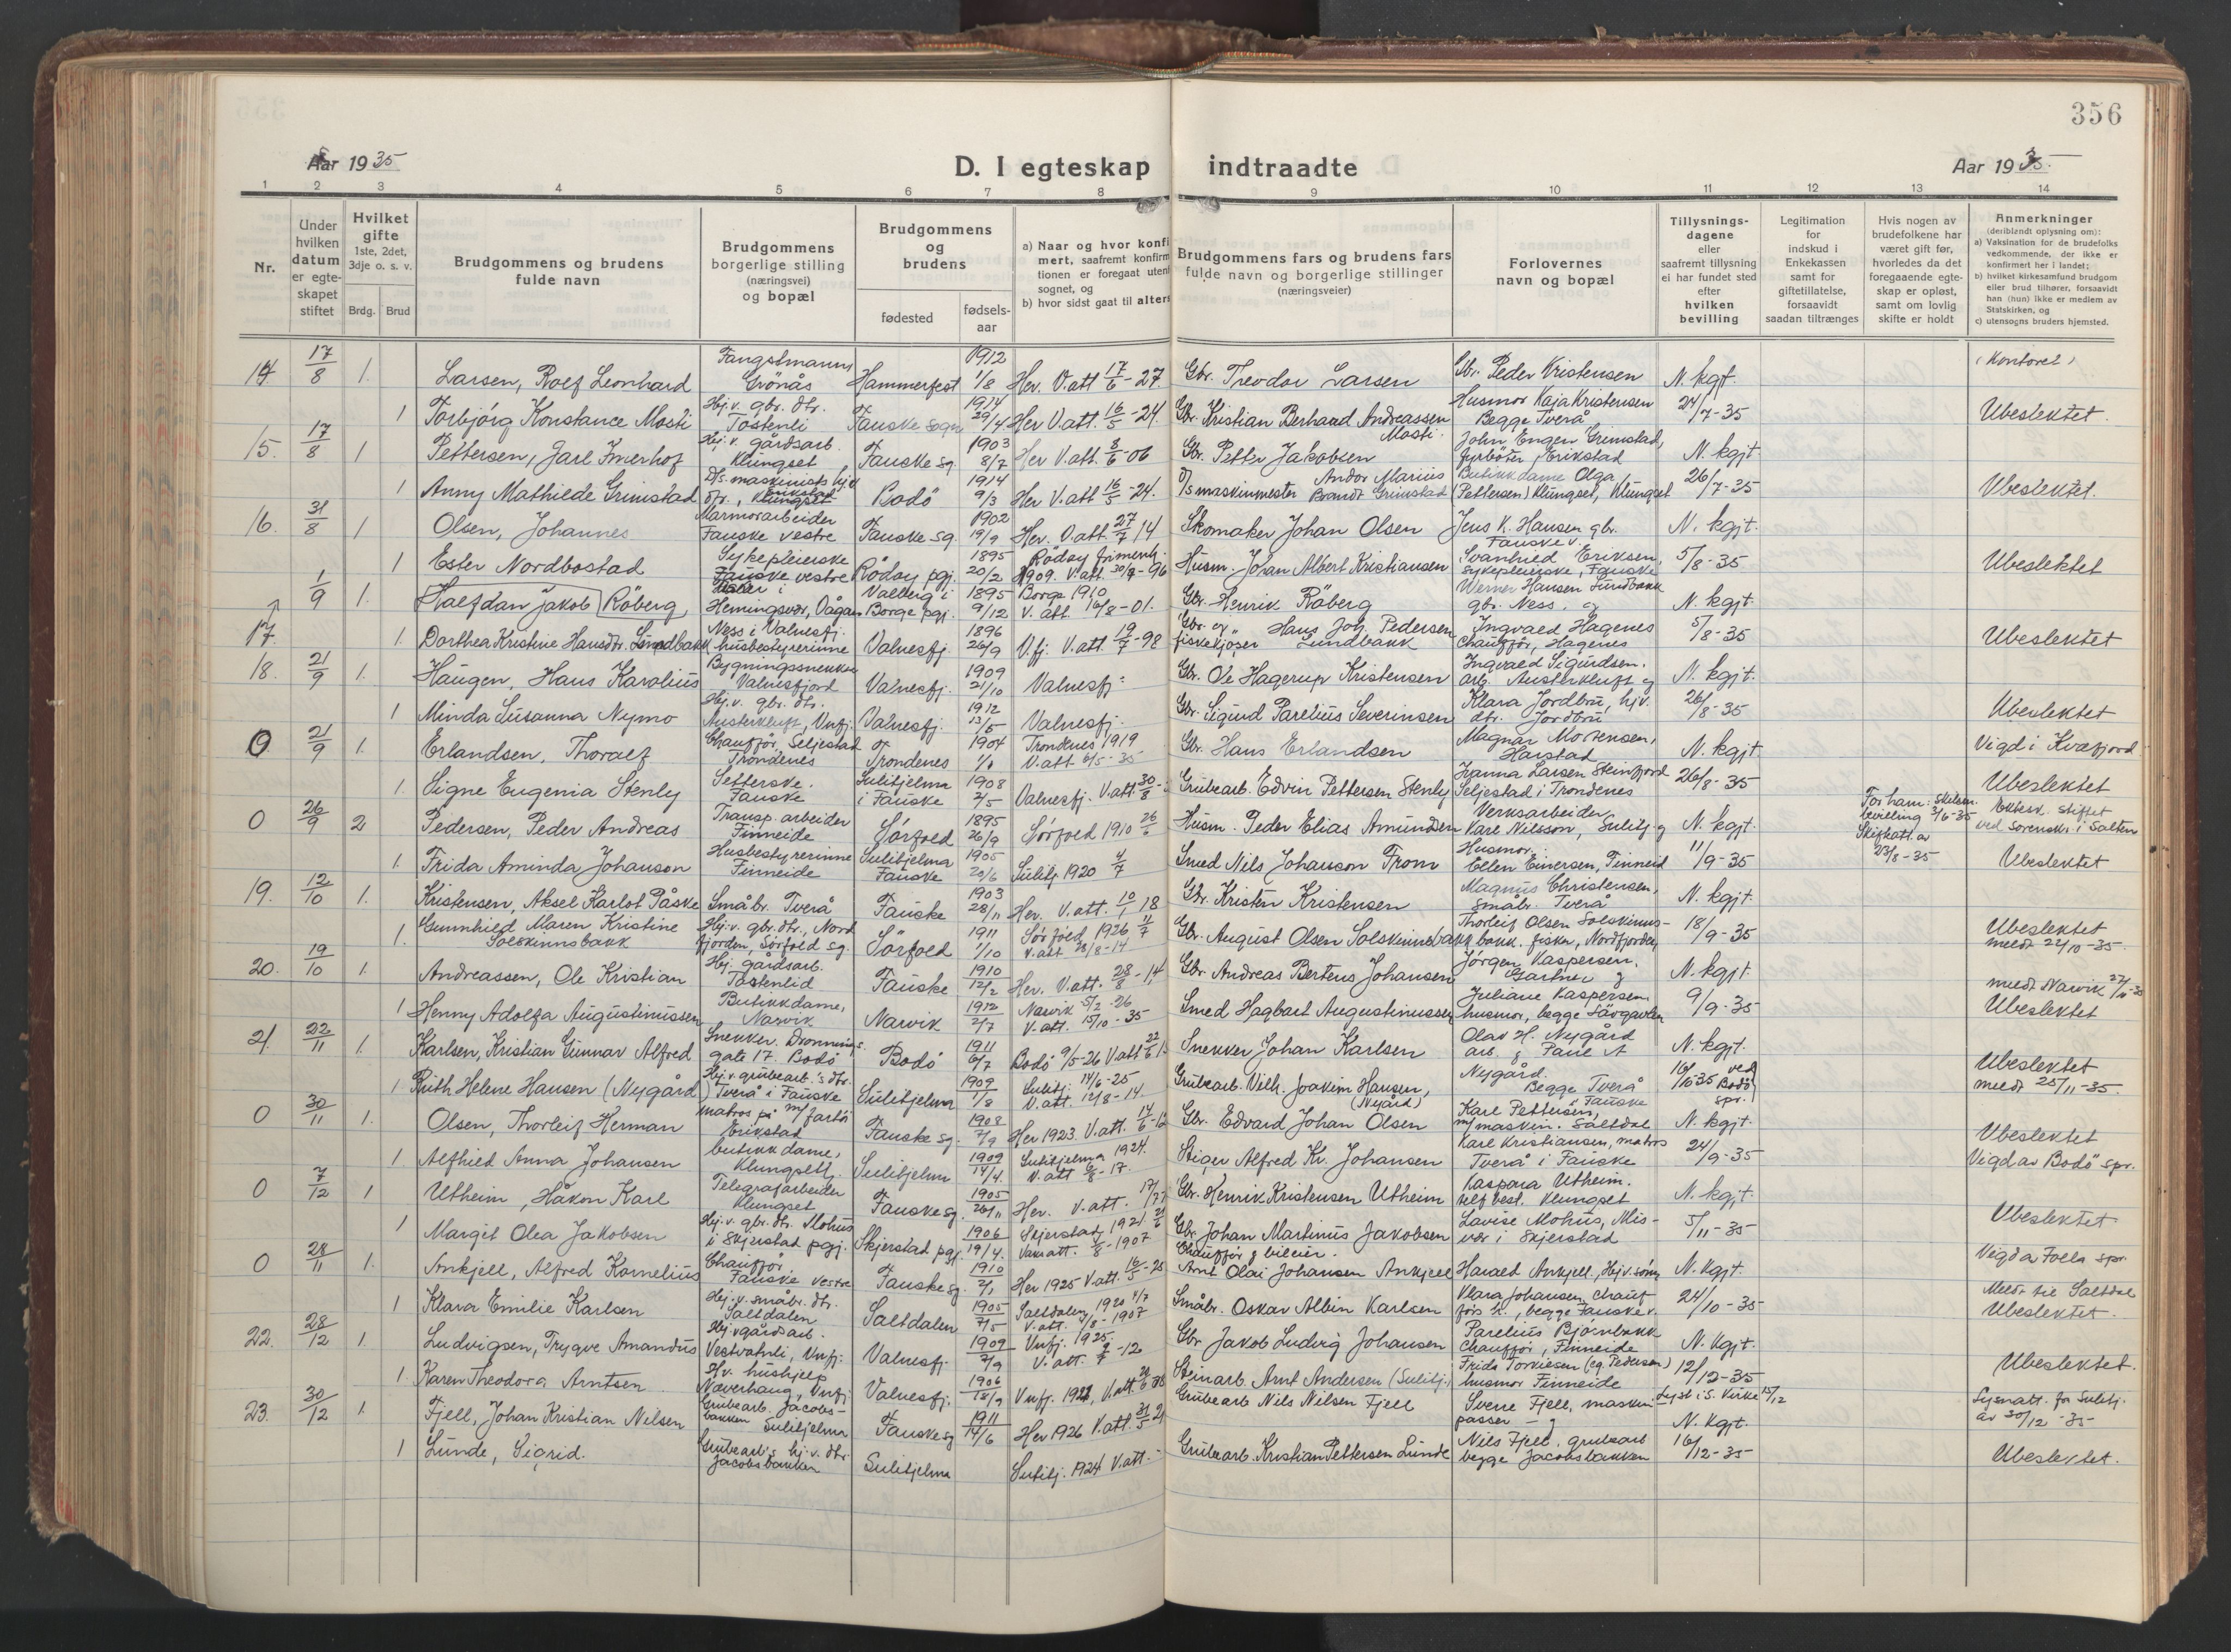 356
Aar 1935
D. I egteskap indtraadte
Aar 1935
1 2 3 4 5 6 7 8 9 10 11 12 13 14
Nr.
Under hvilken datum er egteskapet stiftet
Hvilket gifte 1ste, 2det, 3dje o. s. v.
Brdg. Brud
Brudgommens og brudens fulde navn
Brudgommens borgerlige stilling (næringsvei) og bopæl
Brudgommens og brudens
fødested
fødselsaar
a) Naar og hvor konfi
mert, saafremt konfirm
tionen er foregaat uten
sognet, og
b) hvor sidst gaat til alters
Brudgommens fars og brudens fars fulde navn og borgerlige stillinger (næringsveier)
Forlovernes navn og bopæl
Tillysningsdagene eller saafremt tillysning ei har fundet sted efter hvilken bevilling
Legitimation for indskud i Enkekassen samt for giftetillatelse, forsaavidt saadan tiltrænges
Hvis nogen av brudefolkene har været gift før, hvorledes da det foregaaende egteskap er opløst, samt om lovlig skifte er holdt
Anmerkninger (deriblandt oplysning om):
a) Vaksination for de brudefolks vedkommende, der ikke er konfirmert her i landet;
b) hvilket kirkesamfund brudgom eller brud tilhører, forsaavidt han (hun) ikke er medlem av Statskirken, og
c) utensogns bruders hjemsted.
14. 17/8 1. Larsen, Rolf Leonhard Fangstmann, Grönås Hammerfest 1912 1/8 Her. V.att 17/6-27 Gbr. Theodor Larsen Gbr. Peder Kristensen N. kgjt. (Kontoret)
1 Torbjörg Konstance Mosti Hj.v. gbr. dtr. Tostenli Fauske sogn 1914 29/4 Her V.att. 16/5-24. Gbr. Kristian Berhard Andreassen Mosti. Husmor Kaja Kristensen Begge Tverå 24/7-35 Ubeslektet
15. 17/8 1 Pettersen, Jarl Imerhof Hj.v. gårdsarb. Klungset Fauske sg. 1903 8/7 Her V.att. 8/6-06 Gbr. Petter Jakobsen John Engen Grimstad, fyrböter, Erikstad N. kgjt.
1 Anny Mathilde Grimstad D/s. maskinists hj.v. dtr., Klungset Erikstad Bodö 1914 9/3 Her V.att 16/5-24. D/s maskinmester Andor Marius Brandt Grimstad Butikkdame Olga (Pettersen) Klungset, Klungset 26/7-35 Ubeslektet.
16. 31/8 1 Olsen, Johannes Marmorarbeider Fauske vestre Fauske sg. 1902 19/9 Her. V.att. 27/7 14 Skomaker Johan Olsen Jens K. Hansen gbr. Fauske v. N. kgjt.
1 Ester Nordbostad Sykepleierske Fauske vestre Rödøy pgj. 1895 20/2 1909. V.att. 30/9-96 Husm. Johan Albert Kristiansen Svanhild Eriksen, sykepleierske, Fauske 5/8-35 Ubeslektet
17. 1/9 1. Halfdan Jakob Röberg, Hemingsvær, Vågan Valberg i Borge pgj. 1895 9/12 Borge 1910 V. att. 16/8-01. Gbr. Henrik Röberg Werner Hansen Lundbakk gbr. Ness. og N. kgjt.
1. Dorthea Kristine Hansdtr. Lundbakk Ness i Valnesfj. husbestyrerinne Valnesfj. 1896 26/9 V.fj. V.att. 19/7-98 Gbr. og fiskekjøper Hans Joh. Pedersen Lundbakk Ingvald Hagenes Chauffør, Hagenes 5/8-35 Ubeslektet
18. 21/9 1. Haugen, Hans Karolius Bygningssnekker Valnesfjord Valnesfj. 1909 21/10 Valnesfj. Gbr. Ole Hagerup Kristensen Ingvald Sigurdsen. arb. Austerkluft og N. kgjt.
1 Minda Susanna Nymo Hj.v. gbr. dtr. Austerkluft, Vnfj. Valnesfj. 1912 13/5 Valnesfj. Gbr. Sigurd Parelius Severinsen Klara Jordbru, hj.v. dtr. Jordbru 26/8-35 Ubeslektet
0 21/9 1. Erlandsen, Thoralf Chauffør, Seljestad Trondenes Trondenes 1904 Trondenes 1919 V.att 6/5-35 Gbr. Hans Erlandsen Magnar Mortensen, Harstad N. kgjt. Vigd i Kvæfjord
1. Signe Eugenia Stenly Setterske. Fauske Sulitjelma i Fauske 1908 2/5 Valnesfj. V.att 30/8 Grubearb. Edvin Pettersen Stenly Joanna Larsen Steinfjord Seljestad i Trondenes 26/8-35 Ubeslektet
0 26/9 2 Pedersen, Peder Andreas Transp. arbeider Finneide Sörfold 1895 26/9 Sörfold 1910 26/6 Husm. Peder Elias Amundsen Verksarbeider Karl Nilsson, Sulitj. og N. kgjt. For ham: Skilsm. bevilling 3/6-35 Skifteatt. av 23/8-35 Ektesk. stiftet ved Sorenskr. i Salten
1. Frida Aminda Johanson Husbestyrerinne Finneide Sulitjelma Fauske 1905 20/6 Sulitj. 1920 4/7 Smed Nils Johanson Trom Husmor Ellen Einersen, Finneid 11/9-35 Ubeslektet
19. 12/10 1. Kristensen, Aksel Karlot Påske Småbr. Tverå Fauske 1903 28/11 Her. V.att. 10/1 18 Gbr. Kristen Kristensen Magnus Christensen, Småbr. Tverå N. kgjt.
1. Gunnhild Maren Kristine Solskinnsbakk Hj.v. gbr. dtr., Nordfjorden, Sörfold sg. Sörfold 1911 1/10 Sörfold 1926 11/7 V.att 28/8-14 Gbr. August Olsen Solskinnsbakk Thorleif Olsen Solskinnsbakk. fisker, Nordfjorden, 18/9-35 Ubeslektet meldt 22/10-35.
20. 19/10 1. Andreassen, Ole Kristian Hj. gårdsarb. Tostenlid Fauske 1910 12/2 Her. V.att. 28/8-14 Gbr. Andreas Bertens Johansen Jörgen Kaspersen. Gartner og N. kgjt.
1 Henny Adolfa Augustinussen Butikkdame, Narvik Narvik 1912 2/7 Narvik 5/2-26 V.att. 15/10-35 Smed Hagbart Augustinussen Juliane Kaspersen husmor, begge Søvgavlen 9/9-35 meldt Narvik Ubeslektet
21. 22/11 1. Karlsen, Kristian Gunnar Alfred Snekker. Dronningsgate 17. Bodö Bodö 1911 6/7 Bodö 9/5-26 V.att 22/6 Snekker Johan Karlsen Olav H. Nygård arb. & Paul A N. kgjt.
1 Ruth Helene Hansen (Nygård) Hj.v. grubearb.'s dtr. Tverå i Fauske Sulitjelma 1909 1/8 Sulitj. 14/6-25 V.att. 12/8-14 Grubearb. Vilh. Joakim Hansen, (Nygård) Nygård. Begge Tverå Fauske 16/10 35 ved Bodö spr. Ubeslektet meldt 25/11-35.
0 30/11 1. Olsen, Thorleif Herman Matros på m/fartö Erikstad Fauske sg. 1908 7/9 Her 1923. V.att. 14/6-12 Gbr. Edvard Johan Olsen Karl Pettersen, m/maskin. Saltdal N. kgjt.
1 Alfhild Anna Johansen butikkdame, Klungsett. Sulitjelma 1909 14/4. Sulitjelma 1924. V.att 6/8-17. Stiger Alfred Kr. Johansen Karl Kristiansen, matros Tverå i Fauske 24/9-35 Ubeslektet Vigd av Bodö spr.
0 7/12 1 Utheim, Håkon Karl Telegrafarbeider Klungset Fauske sg. 1905 26/11 Her. V.att. Gbr. Henrik Kristensen Utheim Kaspara Utheim. telf. best. Klungset N. kgjt.
1 Margit Olea Jakobsen Hj.v. gbr. dtr. Mohus i Skjerstad pgj. Skjerstad pgj. 1906 19/4. Skjerstad, 1921 Vaks att. 4/8-1907 Gbr. Johan Martinus Jakobsen Lovise Mohus, Misvær i Skjerstad 5/11-35 Ubeslektet
0 28/11 1. Ankjell, Alfred Kornelius Chauffør Fauske Vestre Fauske sg. 1910 2/1 Her 1925 V.att. 16/5-25 Chauffør & bileier. Arnt Olai Johansen Ankjell Harald Ankjell, Hj.v. sönn N. Kgjt. Vigd a Folla spr.
1 Klara Emilie Karlsen Hj.v. småbr. dtr. Saltdalen Saltdalen 1905 7/5 Saltdalen, 1920 4/7 V.att. 4/8-1907 Småbr. Oskar Albin Karlsen Klara Johansen, chauførs h., begge Fauske v. 24/10-35 Meldt til Saltdal Ubeslektet.
22. 28/12 1. Ludvigsen, Trygve Amandus Hj.v gårdsarb. Vestvatnli, Vnfj. Valnesfj. 1909 2/9 Vnfj. 1925. V.att. 9/7-12 Gbr Jakob Ludvig Johansen Parelius Bjørnbakk Chauffør, Finneide N. Kgjt.
1. Karen Theodora Arntsen Hv. hushjelp Næverhaug, Vnfj. Valnesfj. 1906 18/9 Vnfj. 1921, V.att. Steinarb. Arnt Andersen (Sulitj.) Frida Torkilsen (eg. Pedersen) husmor Finneide 12/12-35 Ubeslektet.
23. 30/12 1. Fjell, Johan Kristian Nilsen Grubearb. Jacobsbakken Sulitjelma Fauske sg 1911 14/6 Her 1926 V.att. 31/5 21 Grubearb Nils Nilsen Fjell Sverre Fjell, maskinpasser - og Lyst i S. Kirke 15/12 N. Kgjt. Lysnatt. fra Sulitj. av 30/12-35
1 Lunde, Sigrid. Grubearb's hj.v. dtr. Jacobsbakken Sulitjelma Sulitj. 1924 V.att. Grubearb. Kristian Pettersen Lunde Nils Fjell, grubearb begge Jacobsbakken 16/12-35 Ubeslektet.